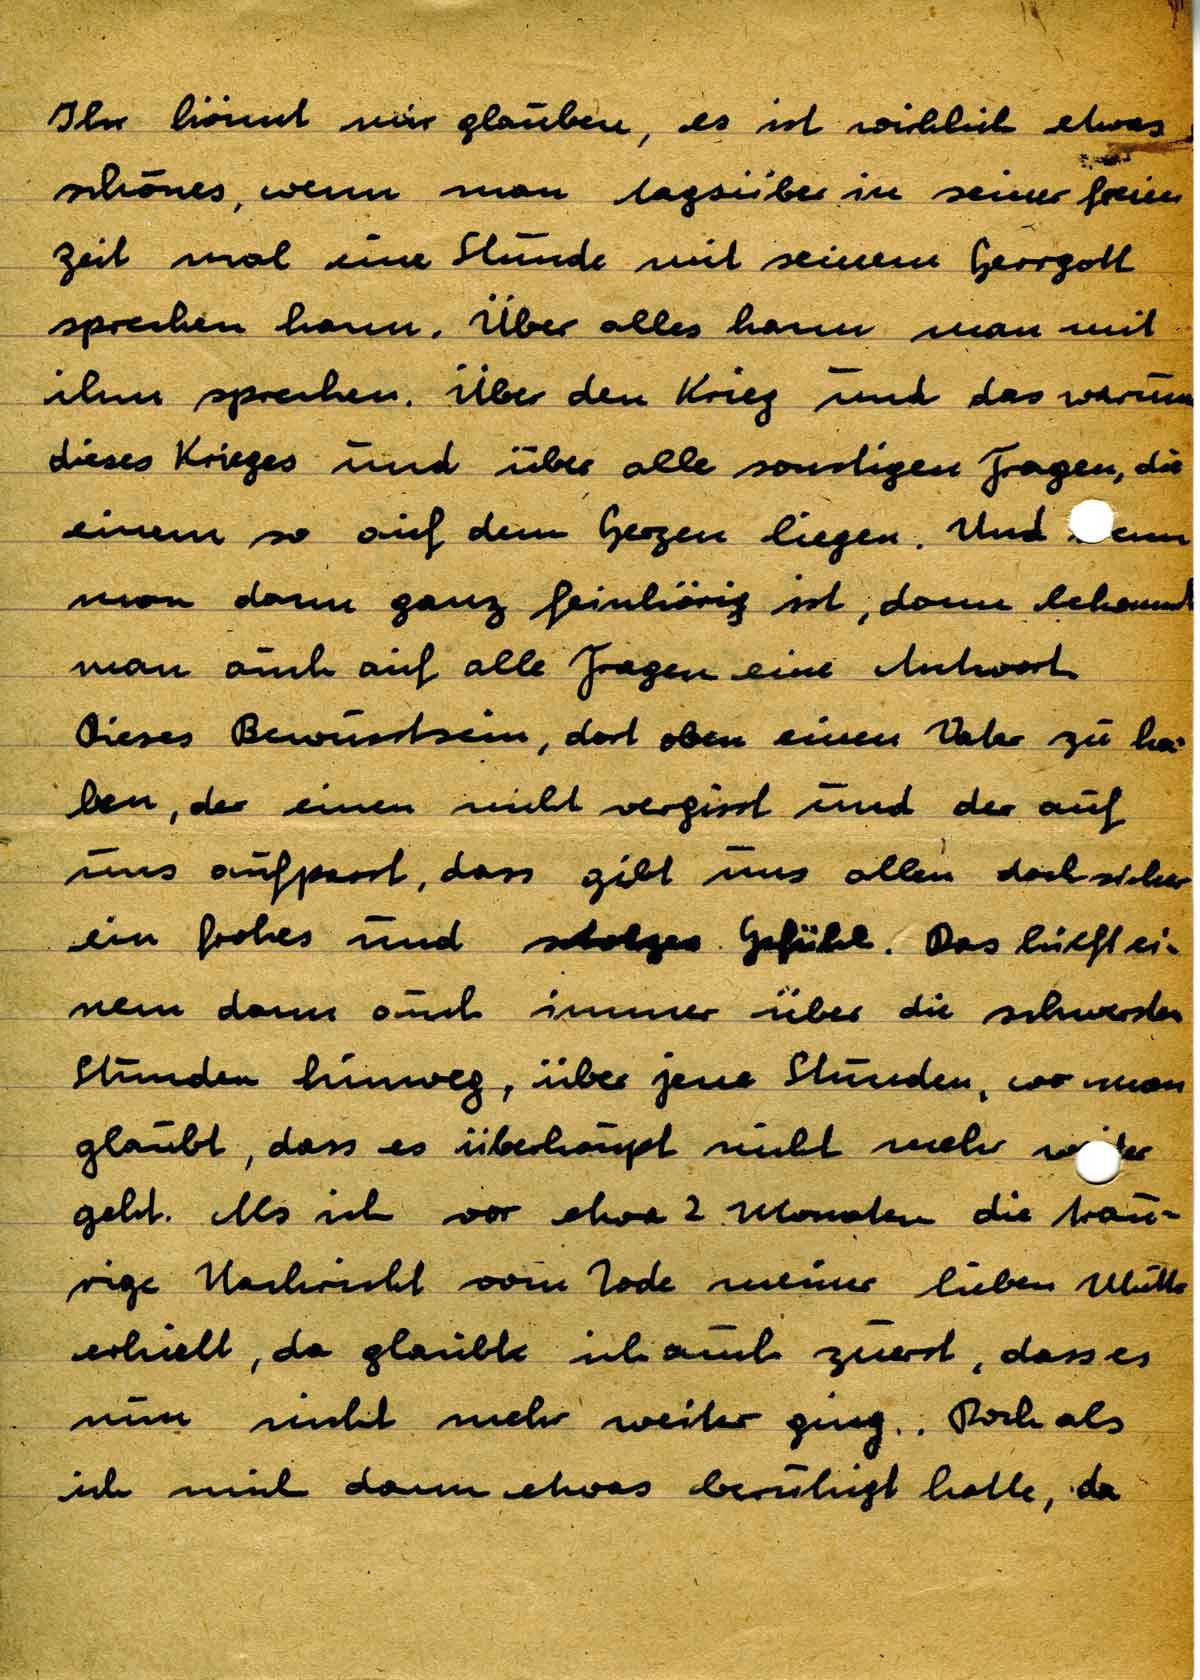 Ihr könnt mir glauben, es ist wirklich etwas
schönes, wenn man tagsüber in seiner freien
Zeit mal eine Stunde mit seinem Herrgott
sprechen kann. Über alles kann man mit
ihm sprechen. Über den Krieg und das warum
dieses Krieges und über alle sonstigen Fragen, die
einem so auf dem Herzen liegen. Und wenn
man dann ganz feinhörig ist, dann bekommt
man auch auf alle Fragen eine Antwort.
Dieses Bewusstsein, dort oben einen Vater zu ha-
ben, der einen nicht vergisst und der auf
uns aufpasst, dass gibt uns allen doch sicher
ein frohes und stolzes Gefühl. Das hilft ei-
nem dann auch immer über die schwersten
Stunden hinweg, über jene Stunden, wo man
glaubt, dass es überhaupt nicht mehr weiter
geht. Als ich vor etwa 2 Monaten die trau-
rige Nachricht vom Tode meiner lieben Mutter
erhielt, da glaubte ich auch zuerst, dass es
nun nicht mehr weiter ging.. Doch als
ich mich dann etwas beruhigt hatte, da